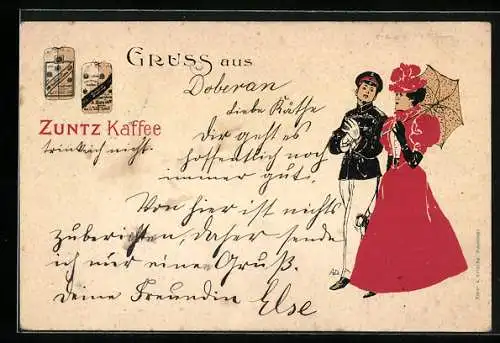 GRUSS aus
Doberan
ZUNTZ Kaffee
trink ich nicht.
Liebe Käthe
Dir geht es
hoffentlich noch
immer gut.
Von hier ist nichts
zuberichten, daher sende
ich nur einen Gruß.
Deine Freundin Else